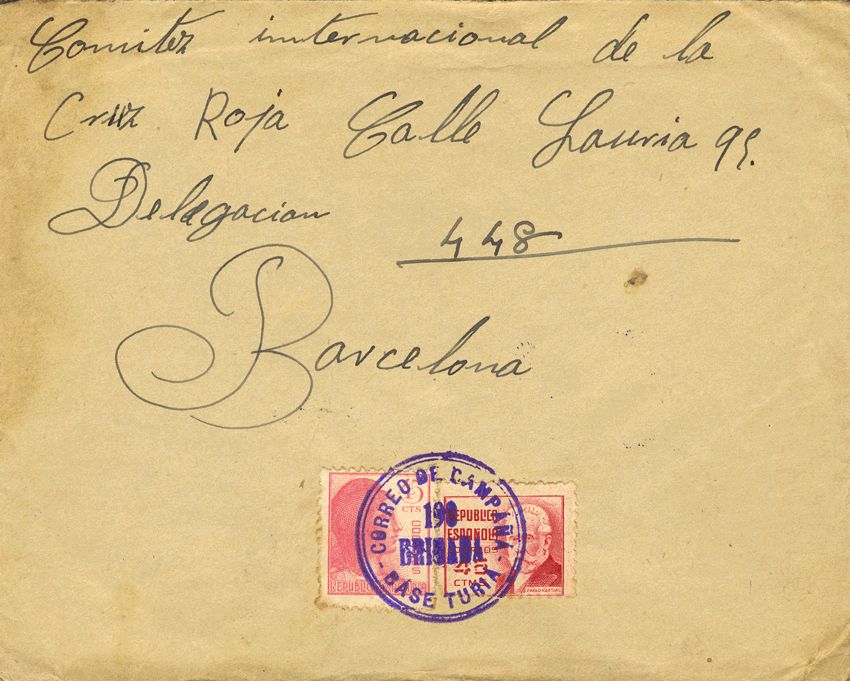 Comitéz innternacional de la
Cruz Roja Calle Lauria 95.
Delegacion
448
Barcelona
CORREO DE CAMPAÑA
190
BRIGADA
- BASE TURIA -
CTS
REPUBLICA
REPUBLICA
ESPAÑOLA
CORREOS
CTMS
PABLO IGLESIAS